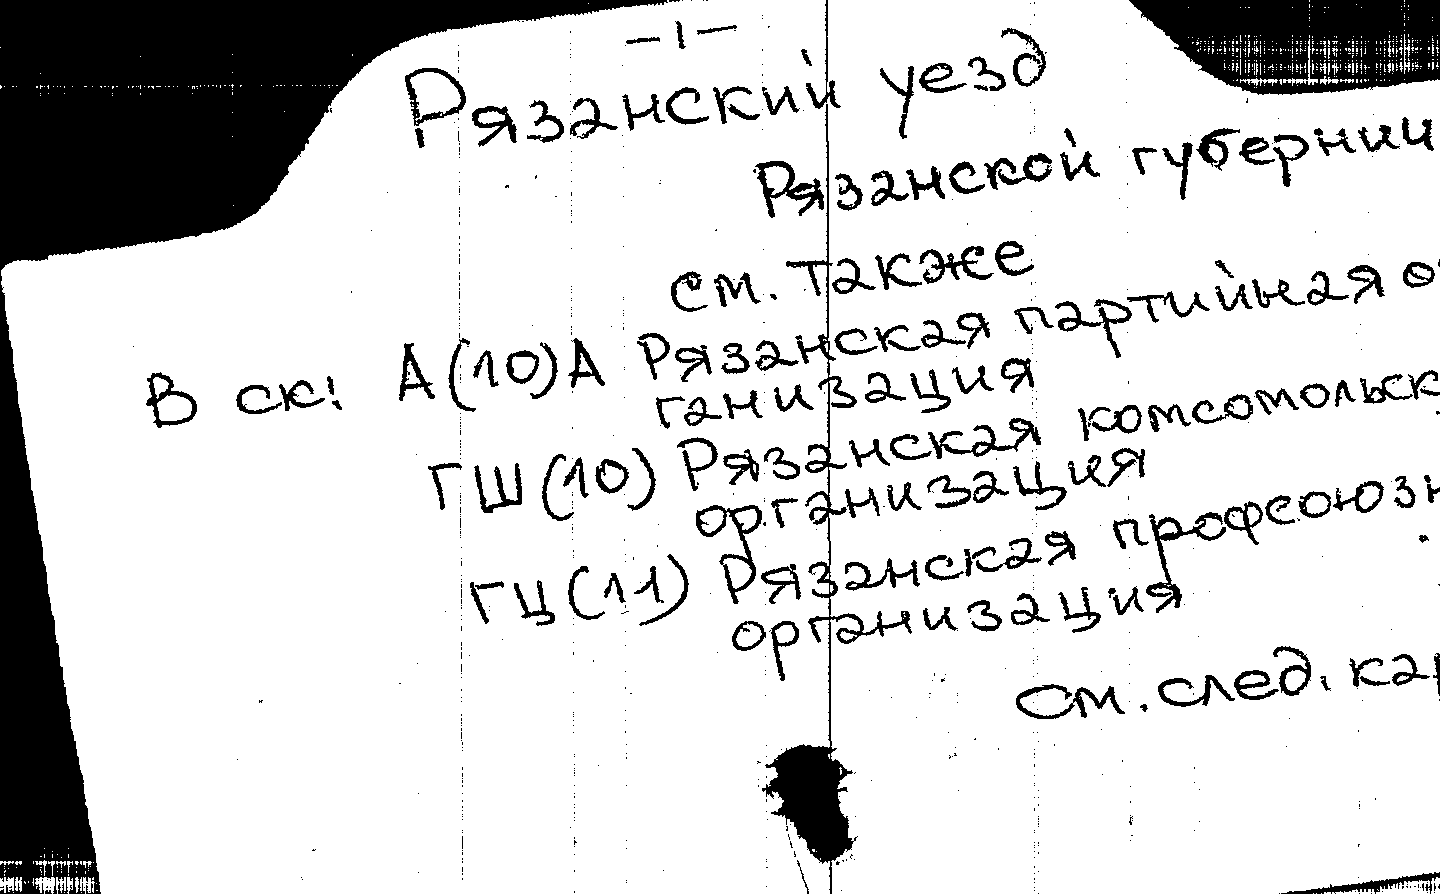 –1–
Рязанский уезд
Рязанской губернии
см. также
В ск! А(10)А Рязанская партийная о
ганизация
ГШ(10) Рязанская комсомольск
организация
ГЦ(11) Рязанская профсоюзн
организация
см. след. кар